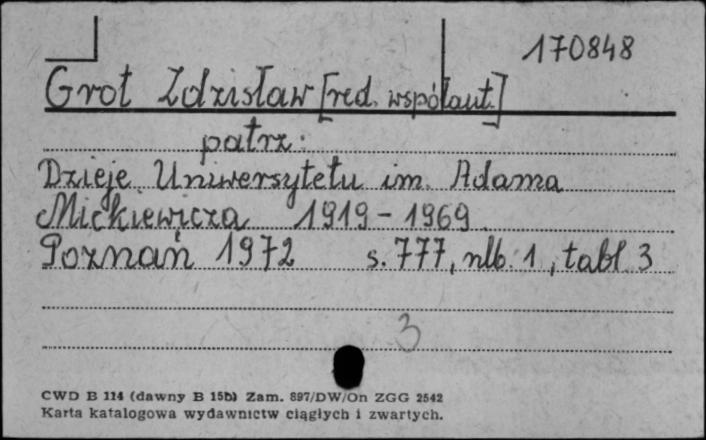 170848
Grot Zdzisław [red. współaut.]
patrz:
Dzieje Uniwersytetu im. Adama
Mickiewicza 1919-1969.
Poznań 1972 s. 777, nlb. 1, tabl. 3
3
CWD B 114 (dawny B 15b) Zam. 897/DW/On ZGG 2542
Karta katalogowa wydawnictw ciągłych i zwartych.